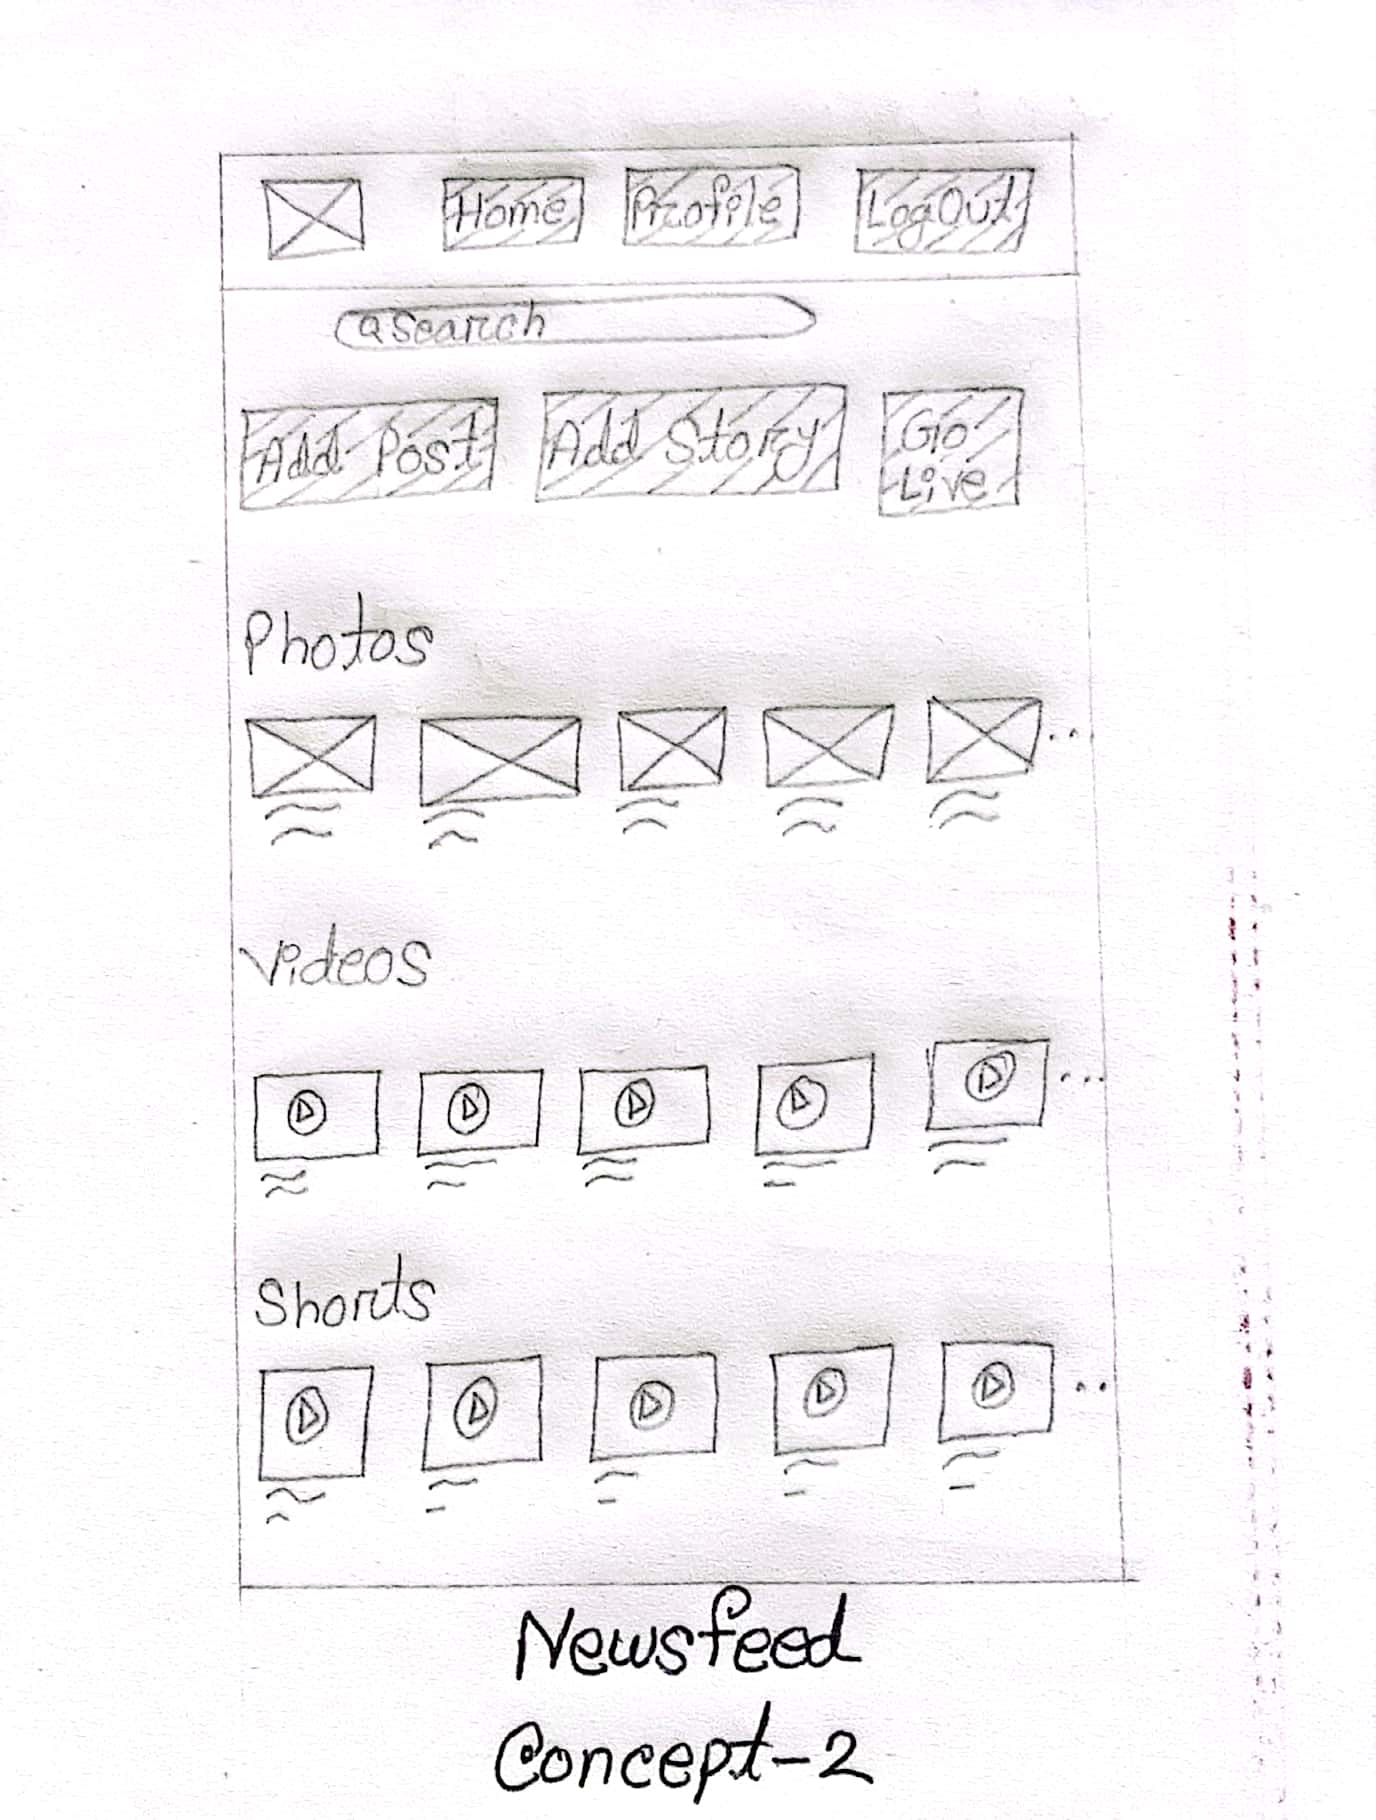 Home Profile LogOut
Search
Add Post Add Story Go
Live
Photos
Videos
Shorts
Newsfeed
Concept-2